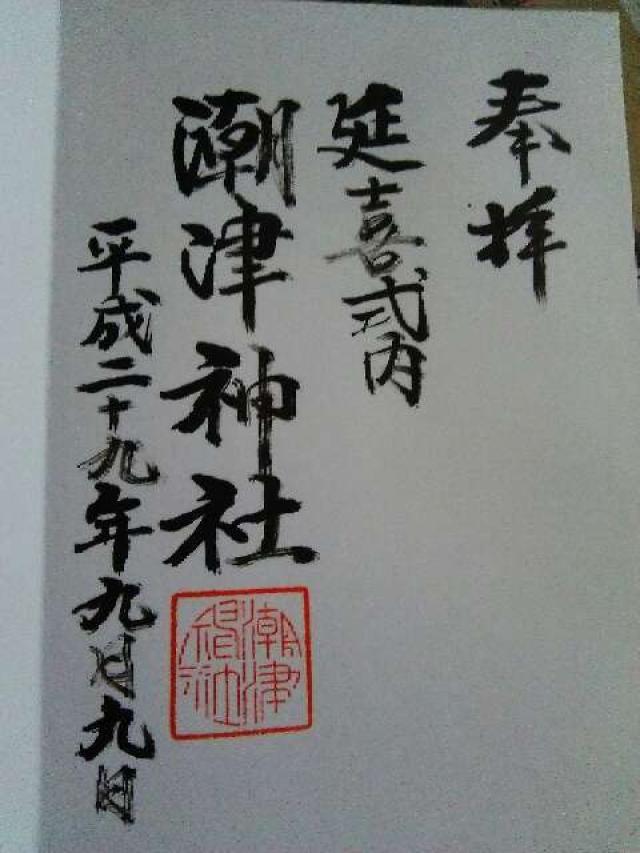 奉拝
延喜式内
潮津神社
平成二十九年九月九日
潮津
神社